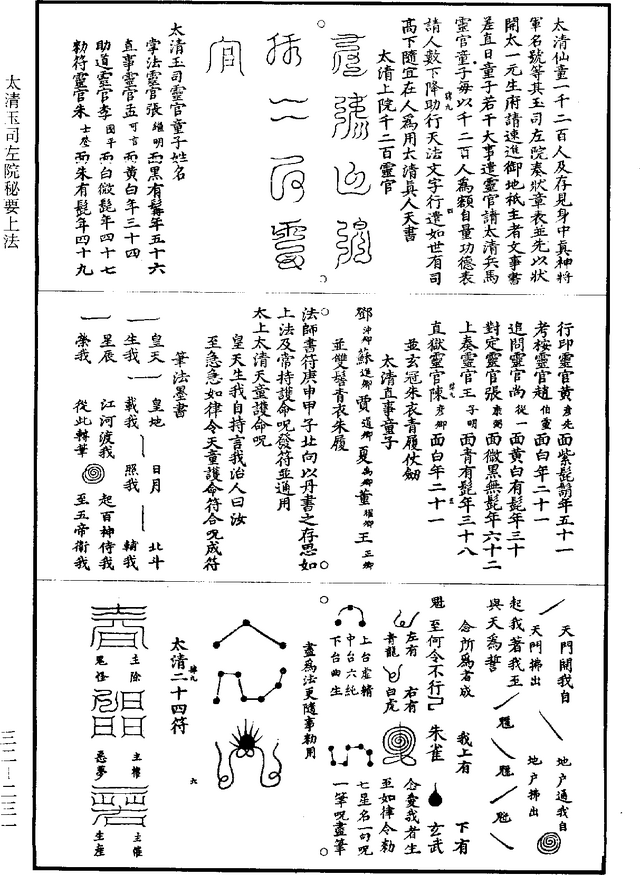 太清玉司左院秘要上法
太清仙童一千二百人及存見身中真神將
軍名號等其玉司左院奏狀章表並先以狀
開太一元生府請速進御地祇主者文字書
差直日童子若干大事遣靈官請太清兵馬
靈官童子每以千二百人為額自量功德表
請人數下降助行天法文字行遣如世有司
高下隨宜在人為用太清真人天書
太清上院千二百靈官
太清玉司靈官童子姓名
掌法靈官張繼明面黑有髯年五十六
直事靈官孟可言面黃白年三十四
助道靈官李固平面白微髭年四十七
勑符靈官朱士營面朱有髭年四十九
行印靈官黃彥先面紫髭鬍年五十一
考校靈官趙伯靈面白年二十一
追問靈官尚從一面黃白有髭年三十
對定靈官張康弼面微黑無髭年六十二
上奏靈官王子明面青有髭年三十八
直獄靈官陳彥卿面白年二十一
並玄冠朱衣青履仗劍
太清直事童子
鄧沖卿蘇進卿賈道卿夏禹卿董福卿王正卿
並雙髻青衣朱履
法師書符庚申甲子北向以丹書之存思如
上法及常持護命呪發符並通用
太上太清天童護命呪
皇天生我自持言我治人曰汝
至急急如律令天童護命符合呪成符
筆法墨書
皇天 皇地 日月 北斗
生我 載我 照我 輔我
星辰 江河渡我 起百神侍我
榮我 從此轉筆 至五帝衛我
天門開我自 地戶通我自
天門拂出 地戶拂出
起我著我至
與天為誓 魁 魁 魁
魁 至何令不行 朱雀 玄武
念所為者成 我上有 下有
左有 右有 念愛我者生
青龍 白虎 至如律令勑
上台虛精 七星名一句呪
中台六純 一筆呪畫筆
下台曲生
畫為法更隨事勑用
太清二十四符
主除 主權 主催
鬼怪 惡夢 生產
三二—二三一